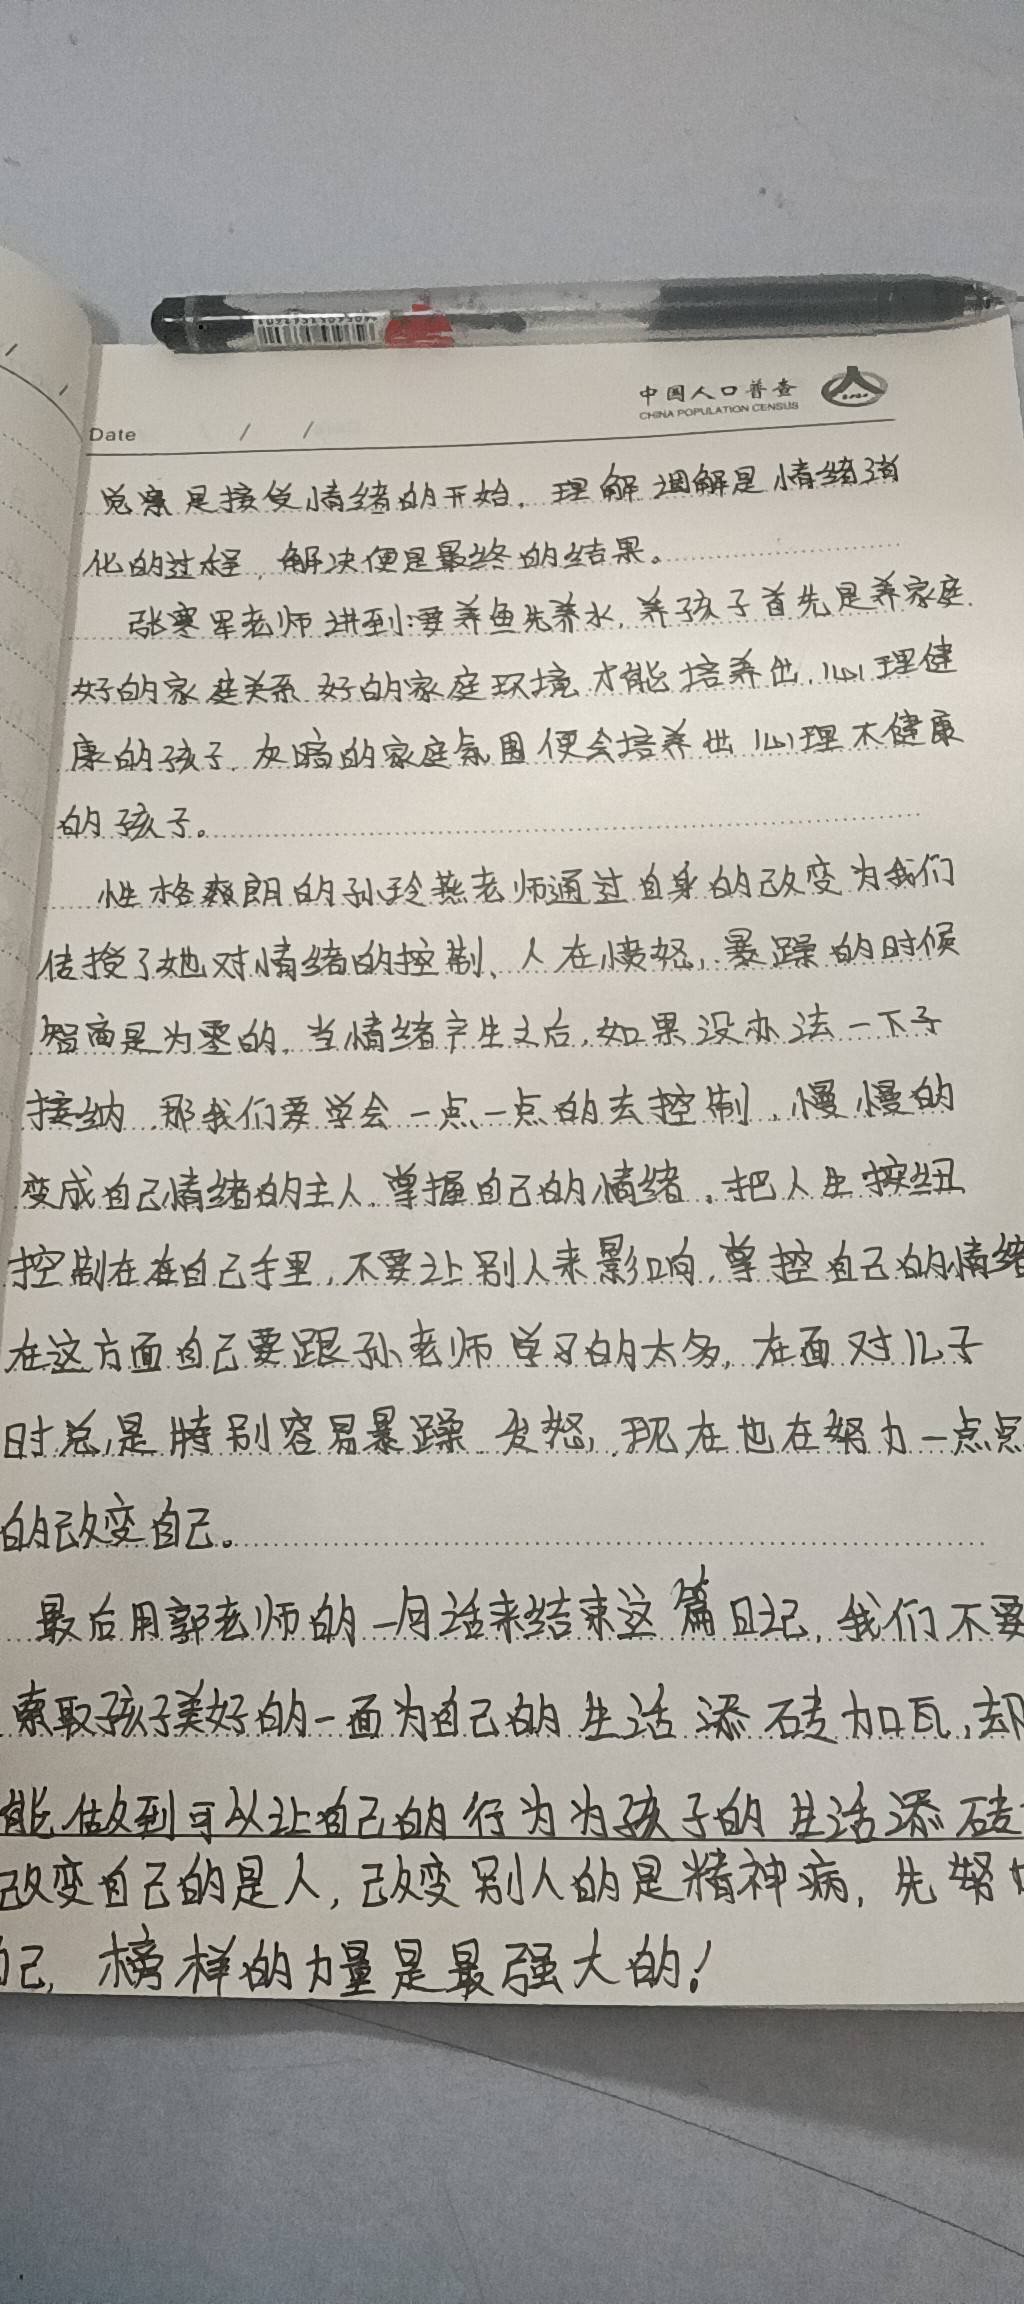 中国人口普查
CHINA POPULATION CENSUS
Date / /
觉察是接受情绪的开始,理解调解是情绪消
化的过程,解决便是最终的结果。
张寒军老师讲到:要养鱼先养水,养孩子首先是养家庭.
好的家庭关系 好的家庭环境才能培养出心理健
康的孩子,灰暗的家庭氛围便会培养出心理不健康
的孩子。
性格爽朗的孙玲燕老师通过自身的改变为我们
传授了她对情绪的控制、人在愤怒,暴躁的时候
智商是为零的,当情绪产生之后,如果没办法一下子
接纳,那我们要学会一点一点的去控制,慢慢的
变成自己情绪的主人,掌握自己的情绪,把人生按纽
控制在在自己手里,不要让别人来影响,掌控自己的情绪
在这方面自己要跟孙老师学习的太多,在面对儿子
时总是特别容易暴躁 发怒,现在也在努力一点点
的改变自己。
最后用郭老师的一句话来结束这篇日记,我们不要
索取孩子美好的一面为自己的生活添砖加瓦,却
能做到可以让自己的行为为孩子的生活添砖
改变自己的是人,改变别人的是精神病,先努
己,榜样的力量是最强大的!